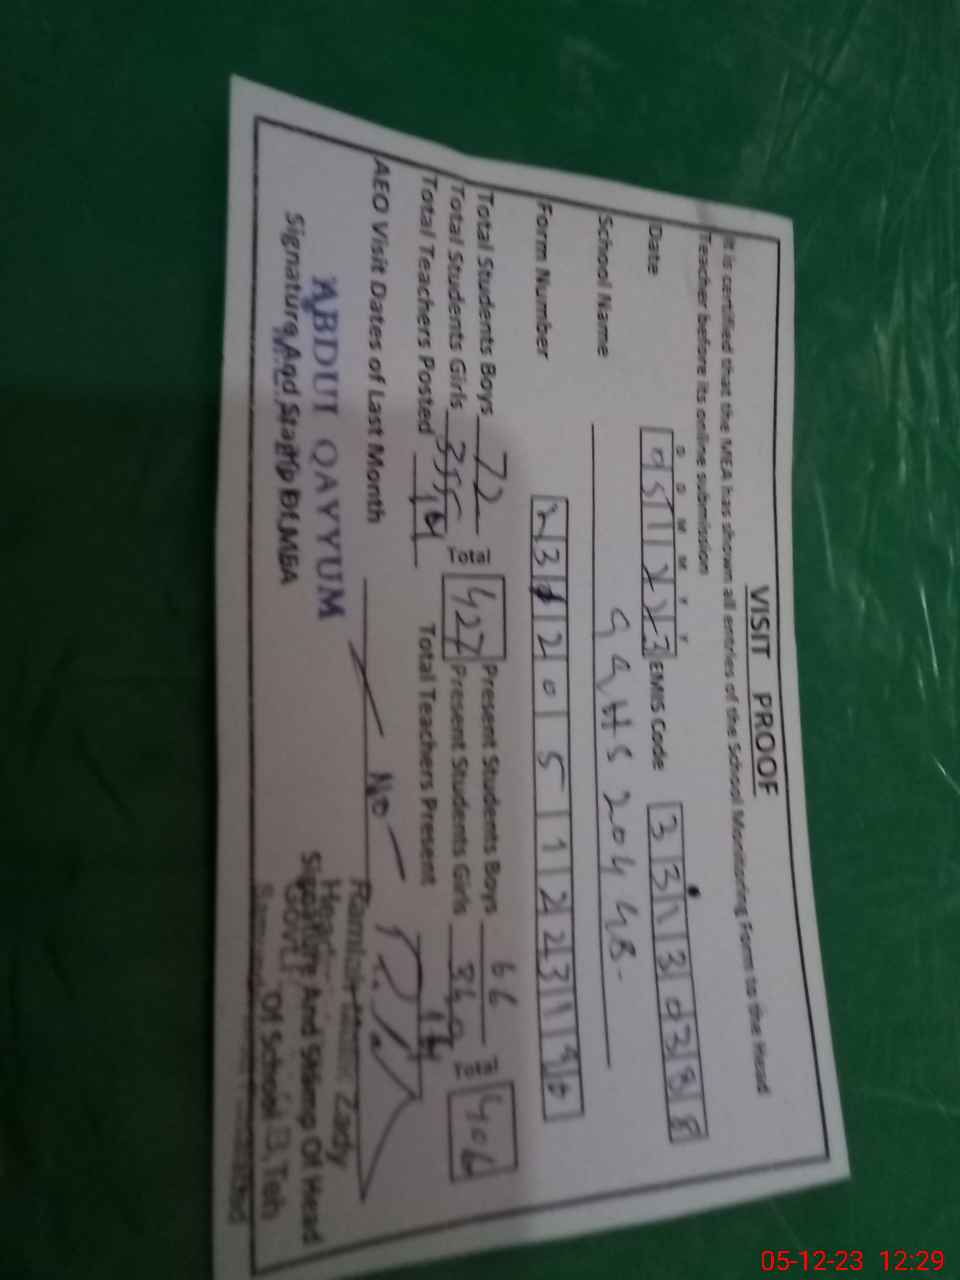 VISIT PROOF
It is certified that the MEA has shown all entries of the School Monitoring Form to the Head
Teacher before its online submission
D D M M Y Y
Date 051223 EMIS Code
School Name GGHS 204 GB.
Form Number
Total Students Boys 72 Total 427 Present Students Boys 66 Total 406
Total Students Girls 355 Present Students Girls 340
Total Teachers Posted 14 Total Teachers Present 14
AEO Visit Dates of Last Month — No —
ABDUL QAYYUM
Signature And Stamp Of MEA
Signature And Stamp Of Head
Of School
05-12-23 12:29